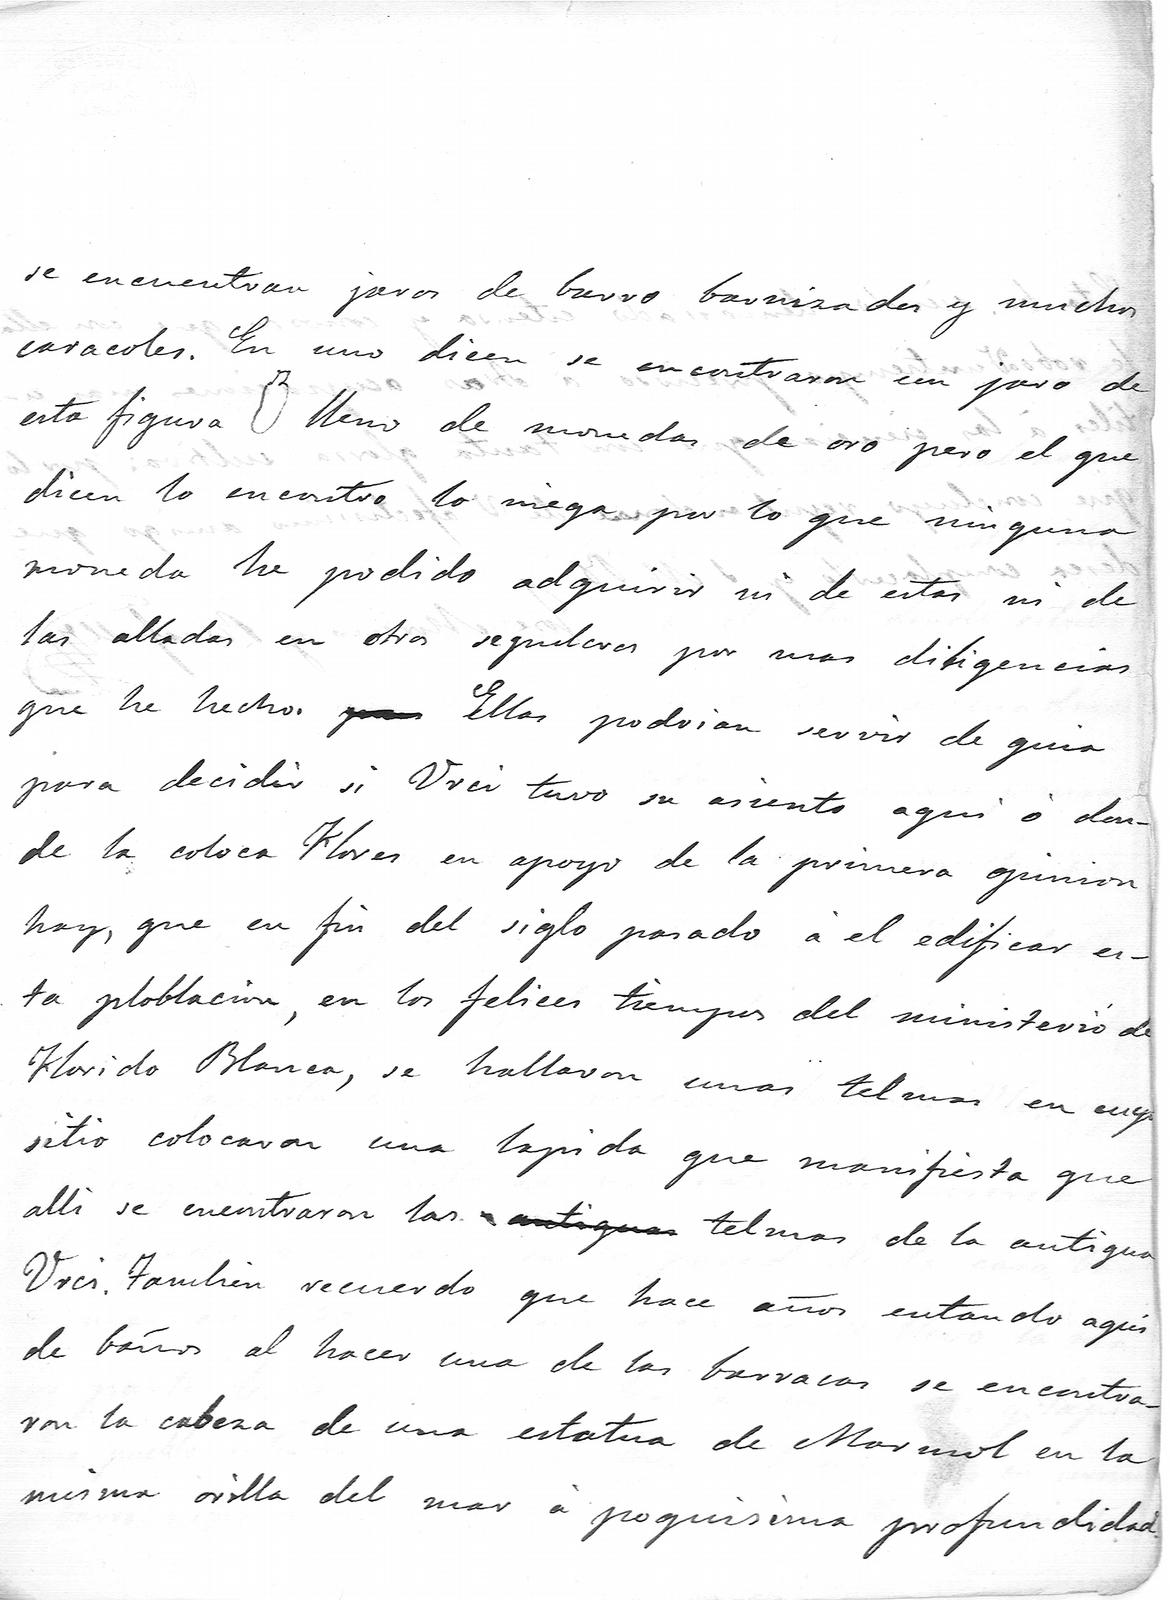 se encuentran jaros de barro barnizados y muchos
caracoles. En uno dicen se encontraron un jaro de
esta figura lleno de monedas de oro pero el que
dicen lo encontro lo niega por lo que ninguna
moneda he podido adquirir ni de estas ni de
las alladas en otros sepulcros por mas diligencias
que he hecho. Ellas podrian servir de guia
para decidir si Urci tuvo su asiento aqui ó don-
de la coloca Flores en apoyo de la primera opinion
hay, que en fin del siglo pasado á el edificar es-
ta ploblacion, en los felices tiempos del ministerió de
Florido Blanca, se hallaron unas telmas en cuyo
sitio colocaron una lapida que manifiesta que
alli se encontraron las antiguas telmas de la antigua
Urci. Tambien recuerdo que hace años estando aqui
de baños al hacer una de las barracas se encontra-
ron la cabeza de una estatua de Marmol en la
misma orilla del mar á poquisima profundidad.